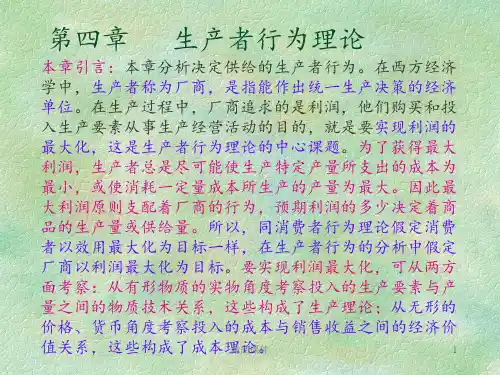 第四章 生产者行为理论
本章引言：本章分析决定供给的生产者行为。在西方经济
学中，生产者称为厂商，是指能作出统一生产决策的经济
单位。在生产过程中，厂商追求的是利润，他们购买和投
入生产要素从事生产经营活动的目的，就是要实现利润的
最大化，这是生产者行为理论的中心课题。为了获得最大
利润，生产者总是尽可能使生产特定产量所支出的成本为
最小，或使消耗一定量成本所生产的产量为最大。因此最
大利润原则支配着厂商的行为，预期利润的多少决定着商
品的生产量或供给量。所以，同消费者行为理论假定消费
者以效用最大化为目标一样，在生产者行为的分析中假定
厂商以利润最大化为目标。要实现利润最大化，可从两方
面考察：从有形物质的实物角度考察投入的生产要素与产
量之间的物质技术关系，这些构成了生产理论；从无形的
价格、货币角度考察投入的成本与销售收益之间的经济价
值关系，这些构成了成本理论。
1